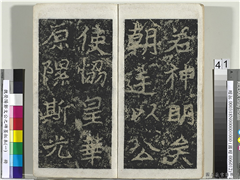 若神明矣
朝廷以公
使協皇華
原隰斯光
41